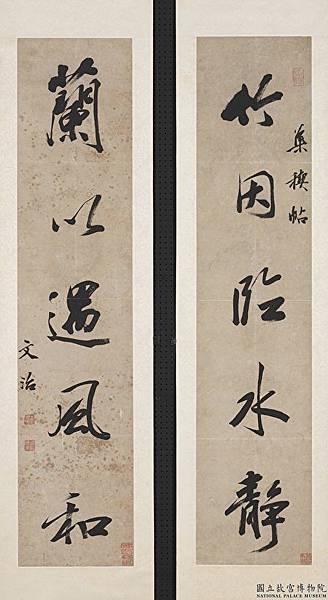 竹因臨水靜
集禊帖
蘭以遇風和
文治
國立故宮博物院
NATIONAL PALACE MUSEUM